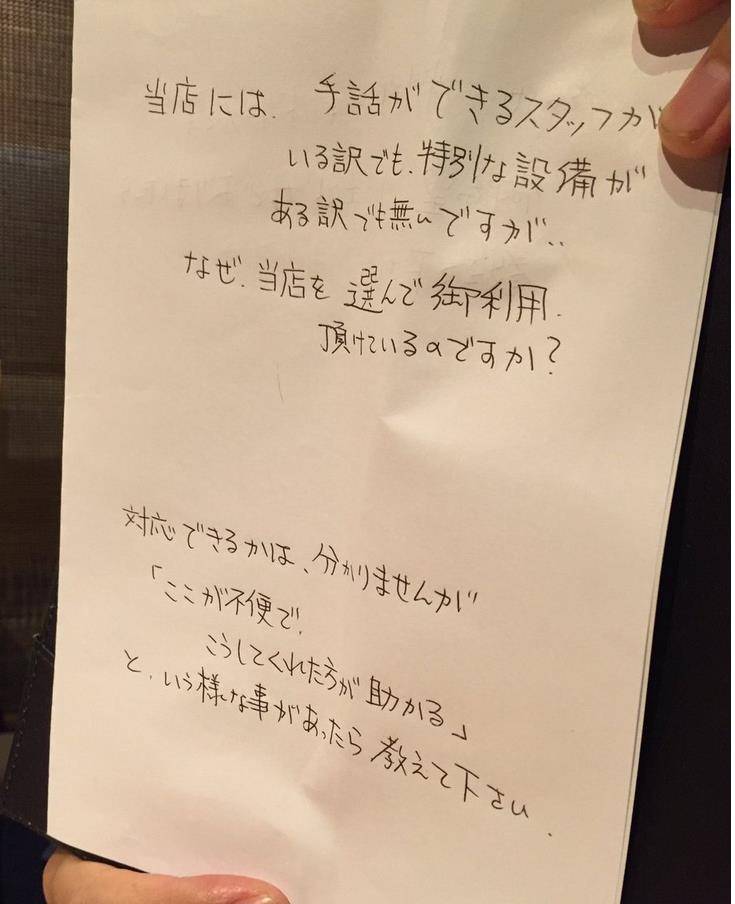 当店には、手話ができるスタッフが
いる訳でも、特別な設備が
ある訳でも無いですが..
なぜ、当店を選んで御利用
頂けているのですか?
対応できるかは、分かりませんが
「ここが不便で、
こうしてくれた方が助かる」
と、いう様な事があったら教えて下さい.